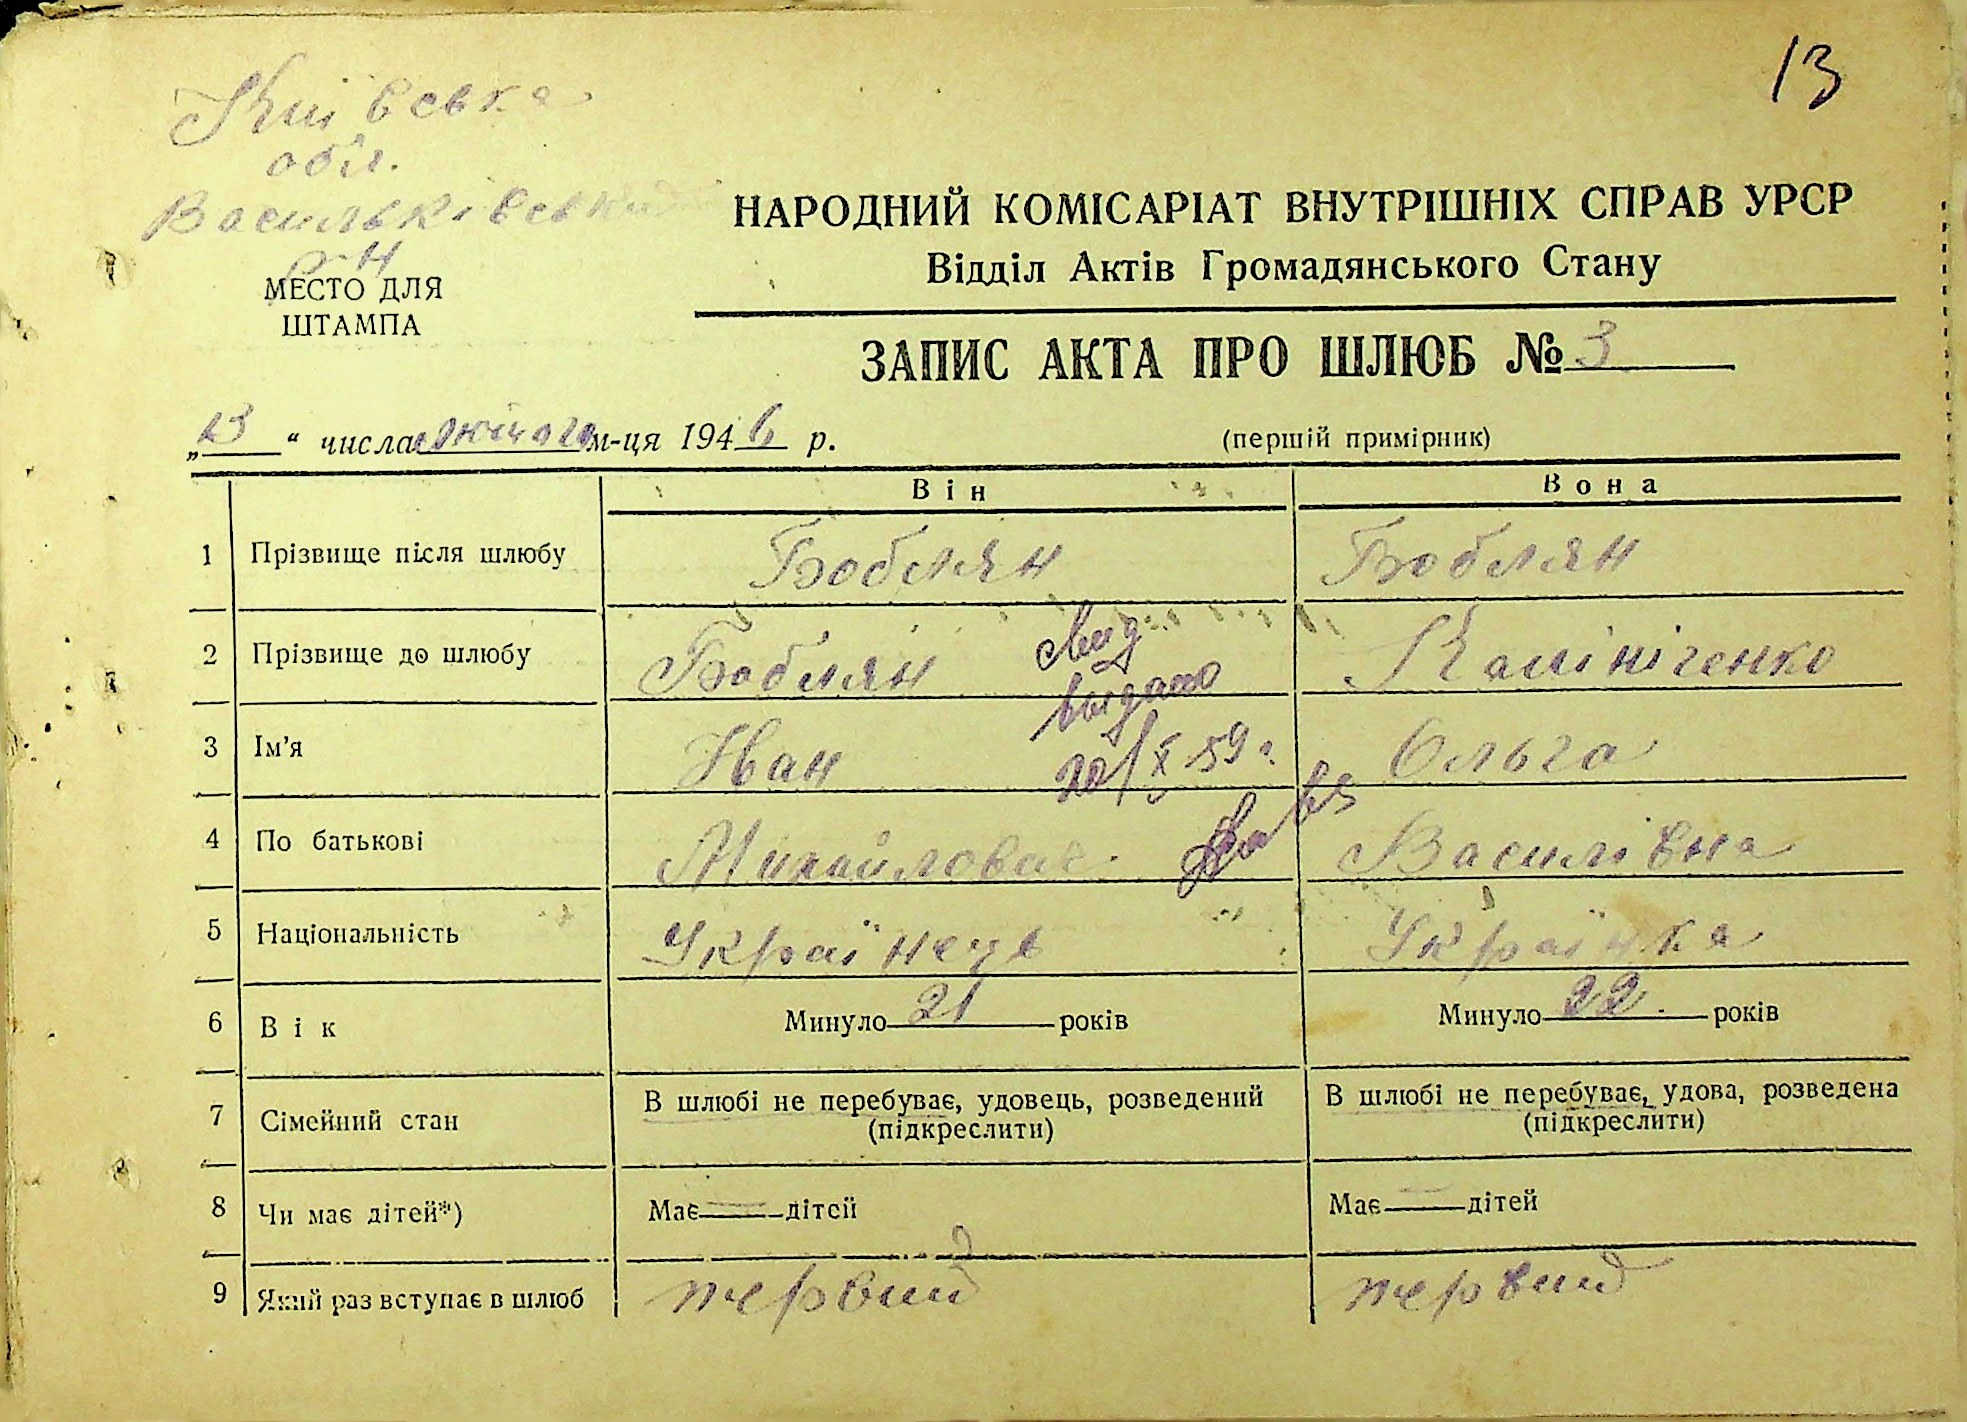 13
Київська
обл.
Васильківський
р-н
МЕСТО ДЛЯ
ШТАМПА
НАРОДНИЙ КОМІСАРІАТ ВНУТРІШНІХ СПРАВ УРСР
Відділ Актів Громадянського Стану
ЗАПИС АКТА ПРО ШЛЮБ № 3
„13“ числа лютого м-ця 1946 р.
(першій примірник)
Він Вона
1 Прізвище після шлюбу Боблян Боблян
2 Прізвище до шлюбу Боблян Калініченко
свид
выдано
20/X 59 г.
3 Ім'я Иван Ольга
4 По батькові Михайлович Василівна
5 Національність Українець Українка
6 Вік Минуло 21 років Минуло 22. років
7 Сімейний стан В шлюбі не перебуває, удовець, розведений В шлюбі не перебуває, удова, розведена
(підкреслити) (підкреслити)
8 Чи має дітей*) Має — дітей Має — дітей
9 Який раз вступає в шлюб первий первий